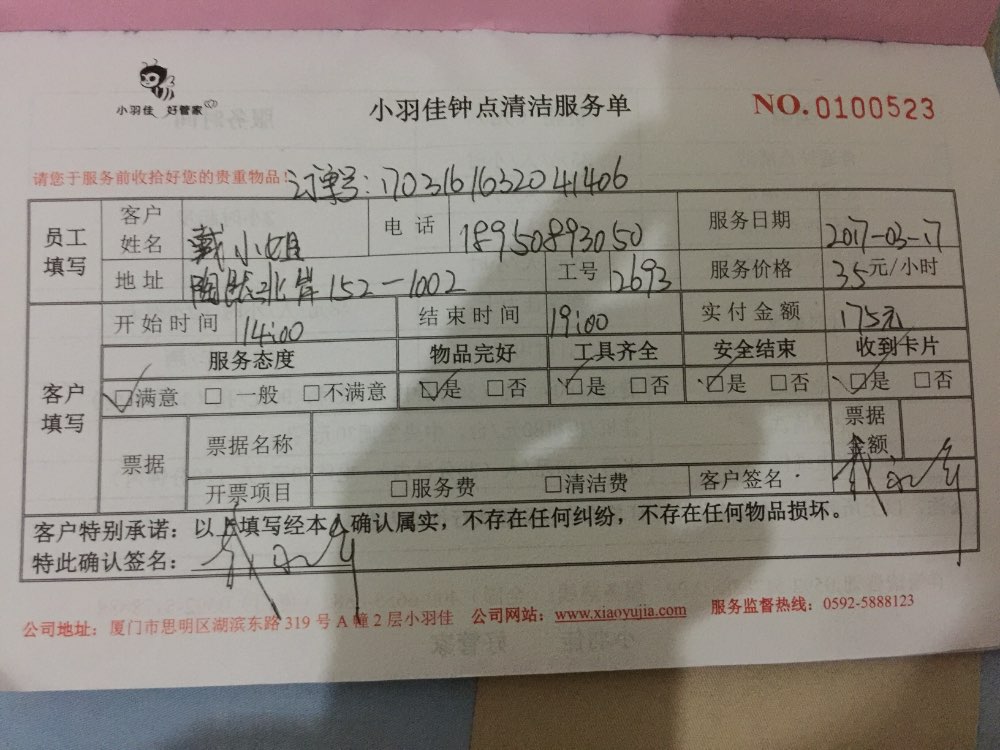 小羽佳 好管家
小羽佳钟点清洁服务单
NO.0100523
请您于服务前收拾好您的贵重物品！
订单号：1703161632041406
员工填写 客户姓名 戴小姐 电话 18950893050 服务日期 2017-03-17
地址 陶然北岸152-1002 工号 2693 服务价格 35元/小时
客户填写 开始时间 14:00 结束时间 19:00 实付金额 175元
服务态度 物品完好 工具齐全 安全结束 收到卡片
☑满意 □一般 □不满意 ☑是 □否 ☑是 □否 ☑是 □否 ☑是 □否
票据 票据名称 票据金额
开票项目 □服务费 □清洁费 客户签名
客户特别承诺：以上填写经本人确认属实，不存在任何纠纷，不存在任何物品损坏。
特此确认签名：
公司地址：厦门市思明区湖滨东路319号A幢2层小羽佳 公司网站：www.xiaoyujia.com 服务监督热线：0592-5888123